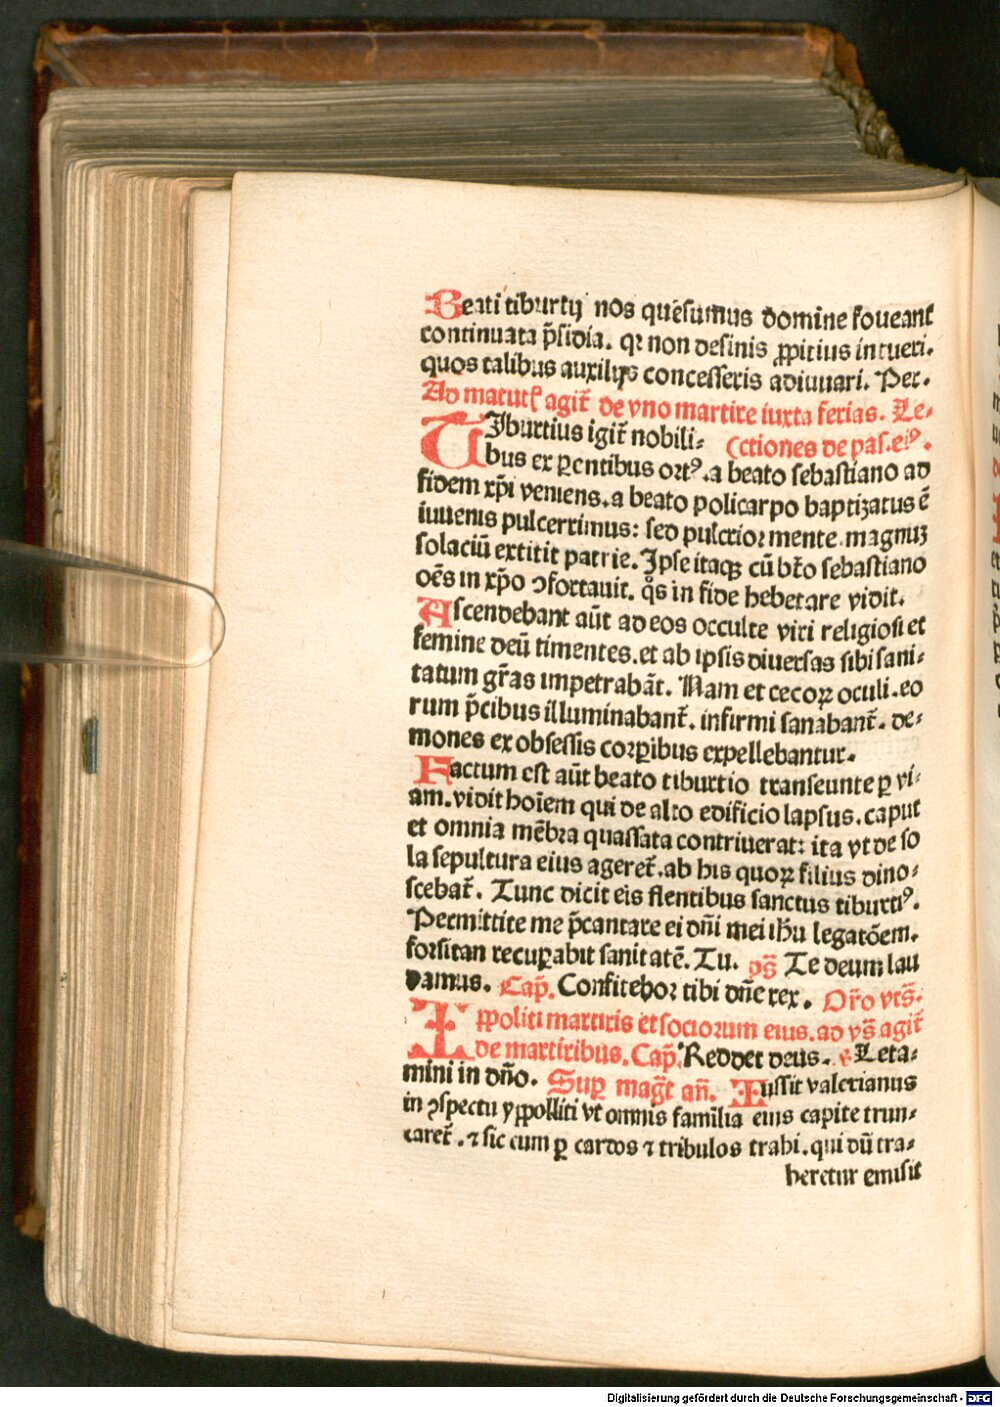 Beati tiburtij nos quesumus domine foueant
continuata p̄sidia. qꝛ non desinis ꝓpitius intueri.
quos talibus auxilijs concesseris adiuuari. Per.
Ad matut̄ agit̄ de vno martire iuxta ferias. Le-
(ctiones de pas.eiꝰ.
TJburtius igit̄ nobili-
bus ex ꝑentibus ortꝰ.a beato sebastiano ad
fidem xp̄i veniens.a beato policarpo baptizatus ē
iuuenis pulcerrimus: sed pulcrior mente.magnuꝫ
solaciū extitit patrie. Ipse itaqꝫ cū bt̄o sebastiano
oēs in xp̄o ꝯfortauit. qͦs in fide hebetare vidit.
Ascendebant aūt ad eos occulte viri religiosi et
femine deū timentes.et ab ipsis diuersas sibi sani-
tatum gr̄as impetrabāt. Nam et cecoꝝ oculi.eo
rum p̄cibus illuminabant̄. infirmi sanabant̄. de-
mones ex obsessis corꝑibus expellebantur.
Factum est aūt beato tiburtio transeunte ꝑ vi-
am.vidit hoīem qui de alto edificio lapsus.caput
et omnia mēbra quassata contriuerat: ita vt de so
la sepultura eius ageret̄.ab his quoꝝ filius dino-
scebat̄. Tunc dicit eis flentibus sanctus tiburtiꝰ.
Permittite me p̄cantare ei dn̄i mei ihū legatōem.
forsitan recuꝑabit sanitatē. Tu. ps̄ Te deum lau
damus. Cap̄. Confitebor tibi dn̄e rex. Or̄o vts̄.
Iꝓpoliti martiris et sociorum eius.ad vs̄ agit̄
de martiribus. Cap̄. Reddet deus. ꝟ Leta-
mini in dn̄o. Suꝑ maḡt an̄. Iussit valerianus
in ꝯspectu yꝓpolliti vt omnis familia eius capite trun-
caret̄. ⁊ sic cum ꝑ cardos ⁊ tribulos trahi. qui dū tra-
heretur emisit
Digitalisierung gefördert durch die Deutsche Forschungsgemeinschaft - DFG